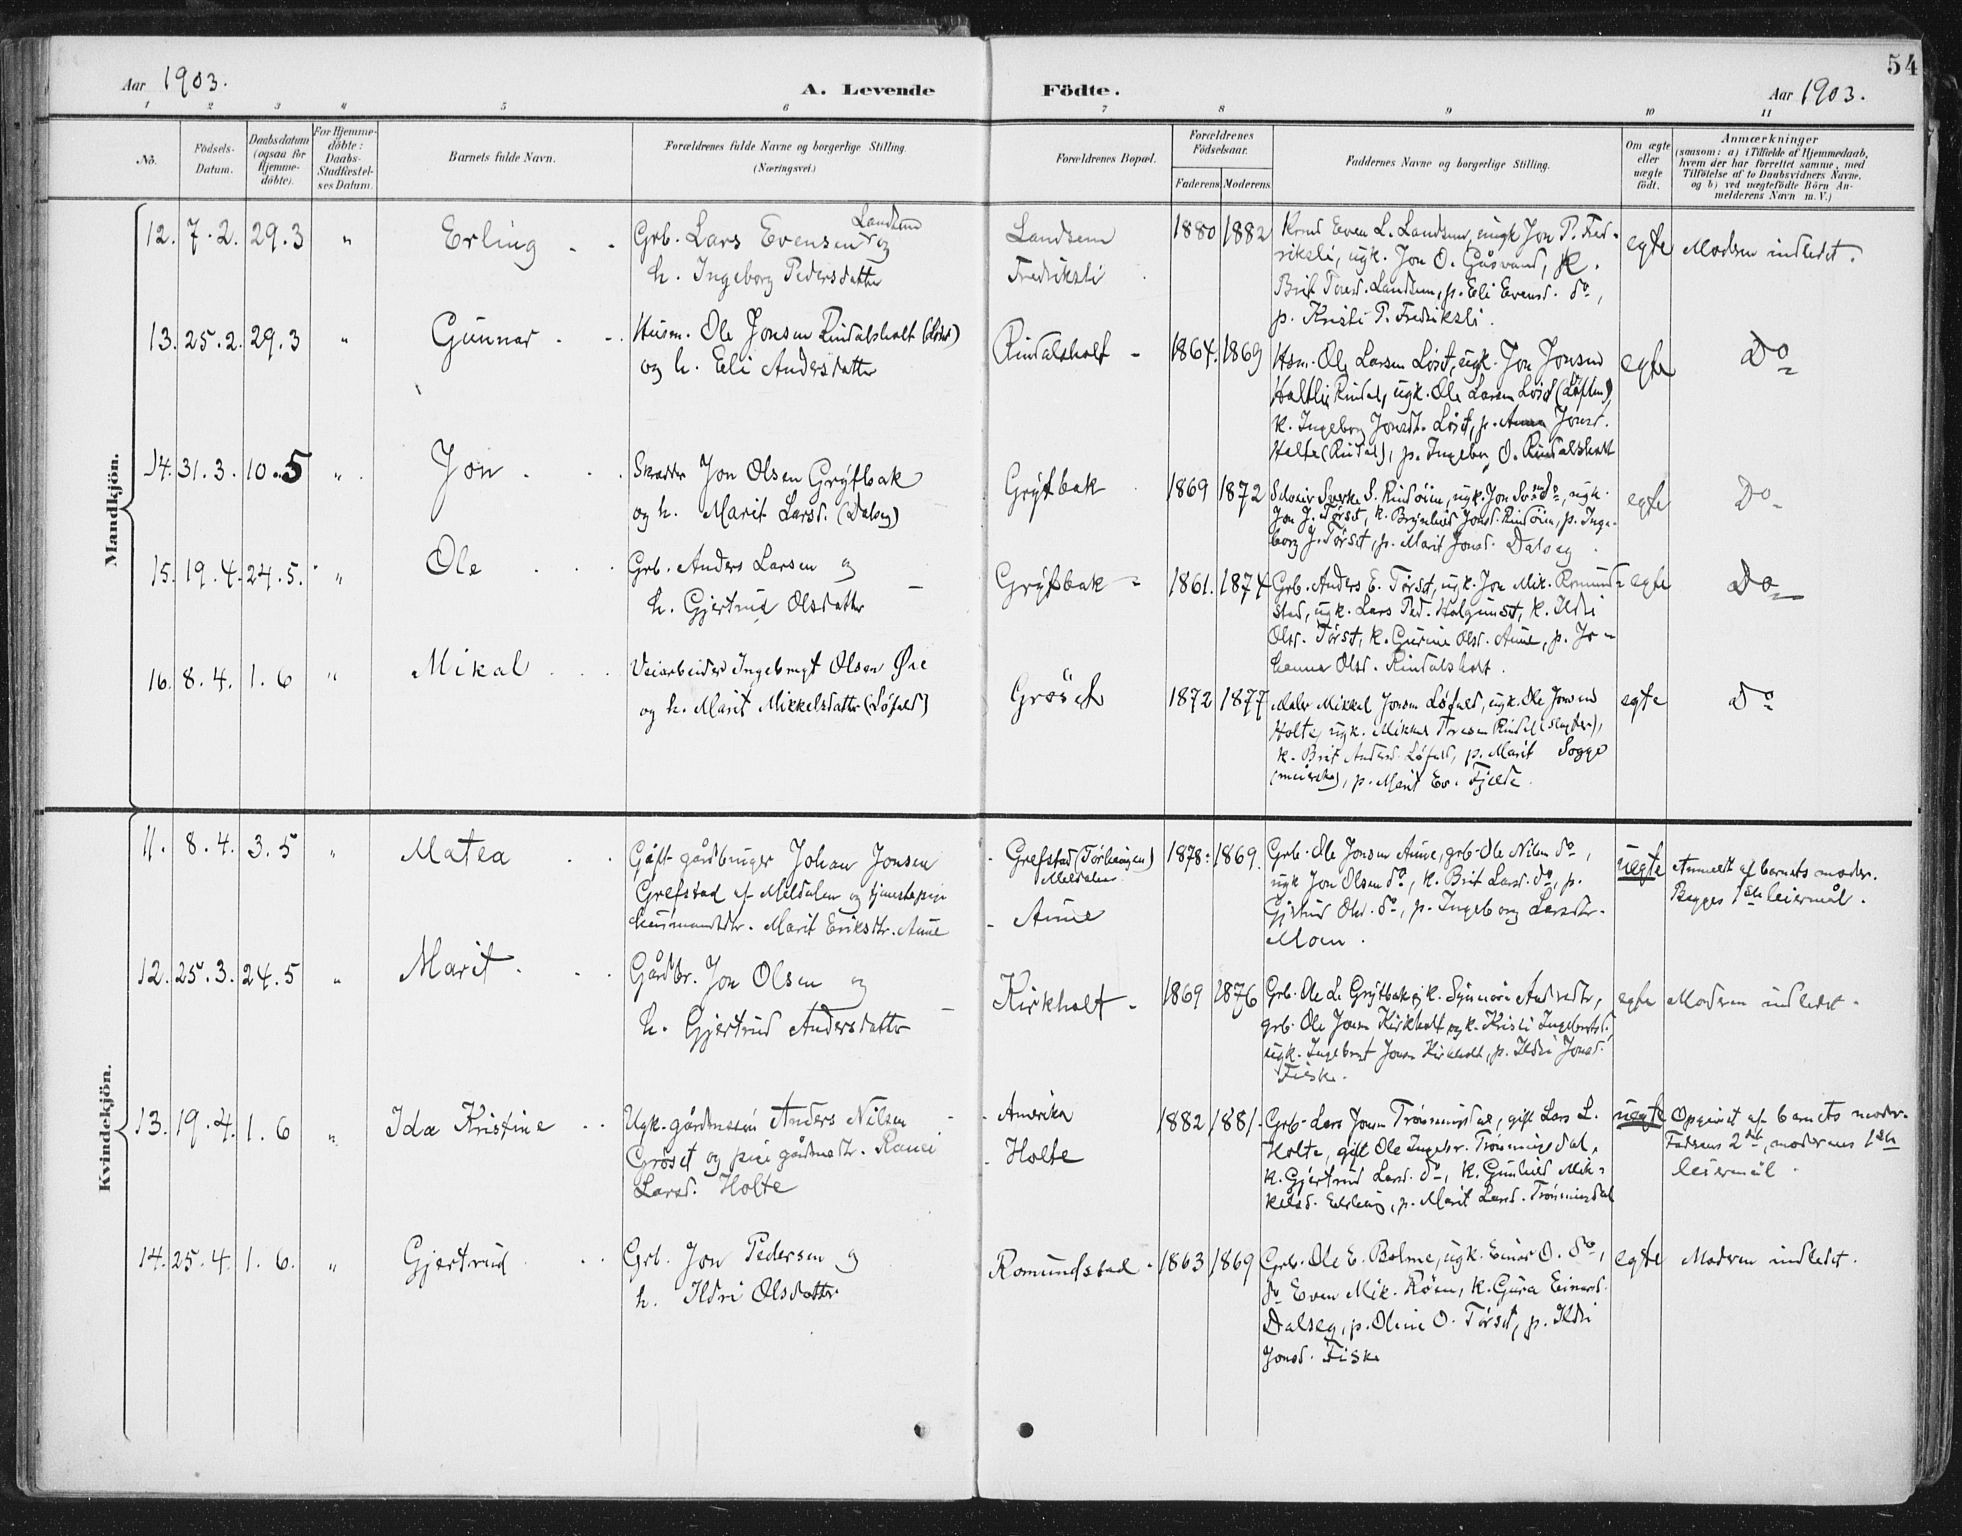 54
Aar 1903.
A. Levende Födte.
Aar 1903.
1 2 3 4 5 6 7 8 9 10 11
No.
Födsels-Datum.
Daabsdatum (ogsaa for Hjemme-döbte).
For Hjemme-döbte: Daabs-Stadfæstel-ses Datum.
Barnets fulde Navn.
Forældrenes fulde Navne og borgerlige Stilling. (Næringsvei.)
Forældrenes Bopæl.
Forældrenes Födselsaar.
Faderens Moderens
Faddernes Navne og borgerlige Stilling.
Om ægte eller uægte födt.
Anmærkninger
(saasom: a) i Tilfælde af Hjemmedaab,
hvem der har forrettet samme, med
Tilföielse af to Daabsvidners Navne.
og b) ved uægtefödte Börn An-
melderens Navn m. V.)
Mandkjön.
12. 7.2. 29.3 " Erling
Grb. Lars Evensen Landsem og
h. Ingeborg Pedersdatter
Landsem
Fredriksli
1880 1882
Even L. Landsem, ungk Jon P. Fred-
riksli, ugk. Jon O. Gåsvand, k.
Brit Toresd. Landsem, p. Eli Evensd. do,
p. Kristi P. Fredriksli.
egte Moderen indledet.
13. 25.2. 29.3 " Gunnar
Husm. Ole Jonsen Rindalsholt (Löset)
og h. Eli Andersdatter
Rindalsholt
1864. 1869
Hsm. Ole Larsen Löset, ugk. Jon Jonsen
Rindal, ugk. Ole Larsen Löset (Löften),
k. Ingeborg Jonsdt. Löset, p. Jonsd.
Holte (Rindal), p. Ingebor O. Rindalsholt
egte Do
14. 31.3. 10.5 " Jon
Skrædder Jon Olsen Grýtbak
og h. Marit Larsd. (Dalseg)
Grýtbak
1869 1872
Sverke S. Rindöien, ugk. Jon do, ugk.
Jon J. Törset, k. Brynhild Jonsd. Rindöien, p. Inge-
borg J. Törset, p. Marit Jonsd. Dalseg.
egte Do
15. 19.4. 24.5. " Ole
Grb. Anders Larsen og
h. Gjertrud Olsdatter
Grýtbak
1861. 1874
Grb. Anders E. Törset, ugk. Jon Mik. Romund-
stad, ugk. Lars Ped. Halgunset, k. Ildri
Olsd. Törset, k. Gurine Olsd. Aune, p. Jo-
hanna Olsd. Rindalsholt.
egte Do
16. 8.4. 1.6 " Mikal
Veiarbeider Ingebrigt Olsen Øie
og h. Marit Mikkelsdatter (Löfald)
Gröset
1872 1877
Maler Mikkel Jonsen Löfald, ugk. Ole Jonsen
Holte, ugk. Mikkel Toresen Rindal (slagter),
k. Brit Andersd. Löfald, p. Marit Sogge
(meierske), p. Marit Ev. Fjelde.
egte Do
Kvindekjön.
11. 8.4. 3.5 " Matea
Gift gårdbruger Johan Jonsen
Grefstad af Meldalen og tjenestepige
husmandsdtr. Marit Eriksdtr. Aune
Grefstad
Meldalen
Aune
1878. 1869.
Grb. Ole Jonsen Aune, grb. Ole Nilsen do,
ugk Jon Olsen do, k. Brit Larsd. do, p.
Gjertrud Olsd. do, p. Ingeborg Larsdtr.
Moen.
uegte
Anmeldt af barnets moder.
Begges 1ste leiermål.
12. 25.3. 24.5 " Marit
Gårdbr. Jon Olsen og
h. Gjertrud Andersdatter
Kirkholt
1869 1876
Grb. Ole L. Grýtbak, k. Synnöve Andersdtr,
grb. Ole Jonsen Kirkholt og k. Kristi Ingebrigtsd.
ugk. Ingebrigt Jonsen Kirkholt, p. Ildri Jonsd.
Fiske.
egte Moderen indledet.
13. 19.4. 1.6 " Ida Kristine
Ugk. gårdmssön Anders Nilsen
Gröset og pige gårdmsdtr. Ranei
Larsd. Holte
Amerika
Holte
1882 1881.
Grb. Lars Jonsen Trönningsdal, gift Lars L.
Holte, gift Ole Ingebr. Trönningsdal,
k. Gjertrud Larsd. do, k. Gunhild Mik-
kelsd., p. Marit Larsd. Trönningsdal
uegte
Opgivet af barnets moder.
Faderens 2det, moderens 1ste
leiermål.
14. 25.4. 1.6. " Gjertrud
Grb. Jon Pedersen og
h. Ildri Olsdatter
Romundstad
1863 1869
Grb. Ole E. Bolme, ugk. Einar O. do,
do Even Mik. Röen, k. Gura Einarsd.
Dalseg, p. Oline O. Törset, p. Ildri
Jonsd. Fiske
egte Moderen indledet.